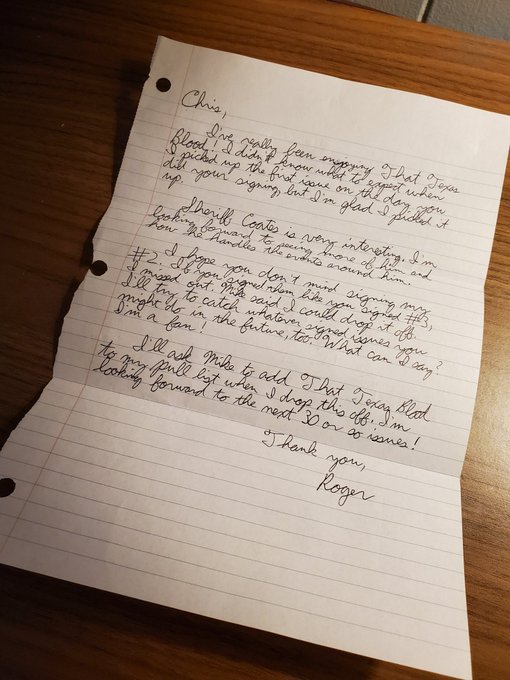 Chris,
I've really been enjoying That Texas
Blood! I didn't know what to expect when
I picked up the first issue on the day you
did your signing, but I'm glad I picked it
up.
Sheriff Coates is very interesting. I'm
looking forward to seeing more of him and
how he handles the events around him.
I hope you don't mind signing my
#2. If you signed them like you signed #3,
I missed out. Mike said I could drop it off.
I'll try to catch whatever signed issues you
might do in the future, too. What can I say?
I'm a fan!
I'll ask Mike to add That Texas Blood
to my pull list when I drop this off. I'm
looking forward to the next 30 or so issues!
Thank you,
Roger